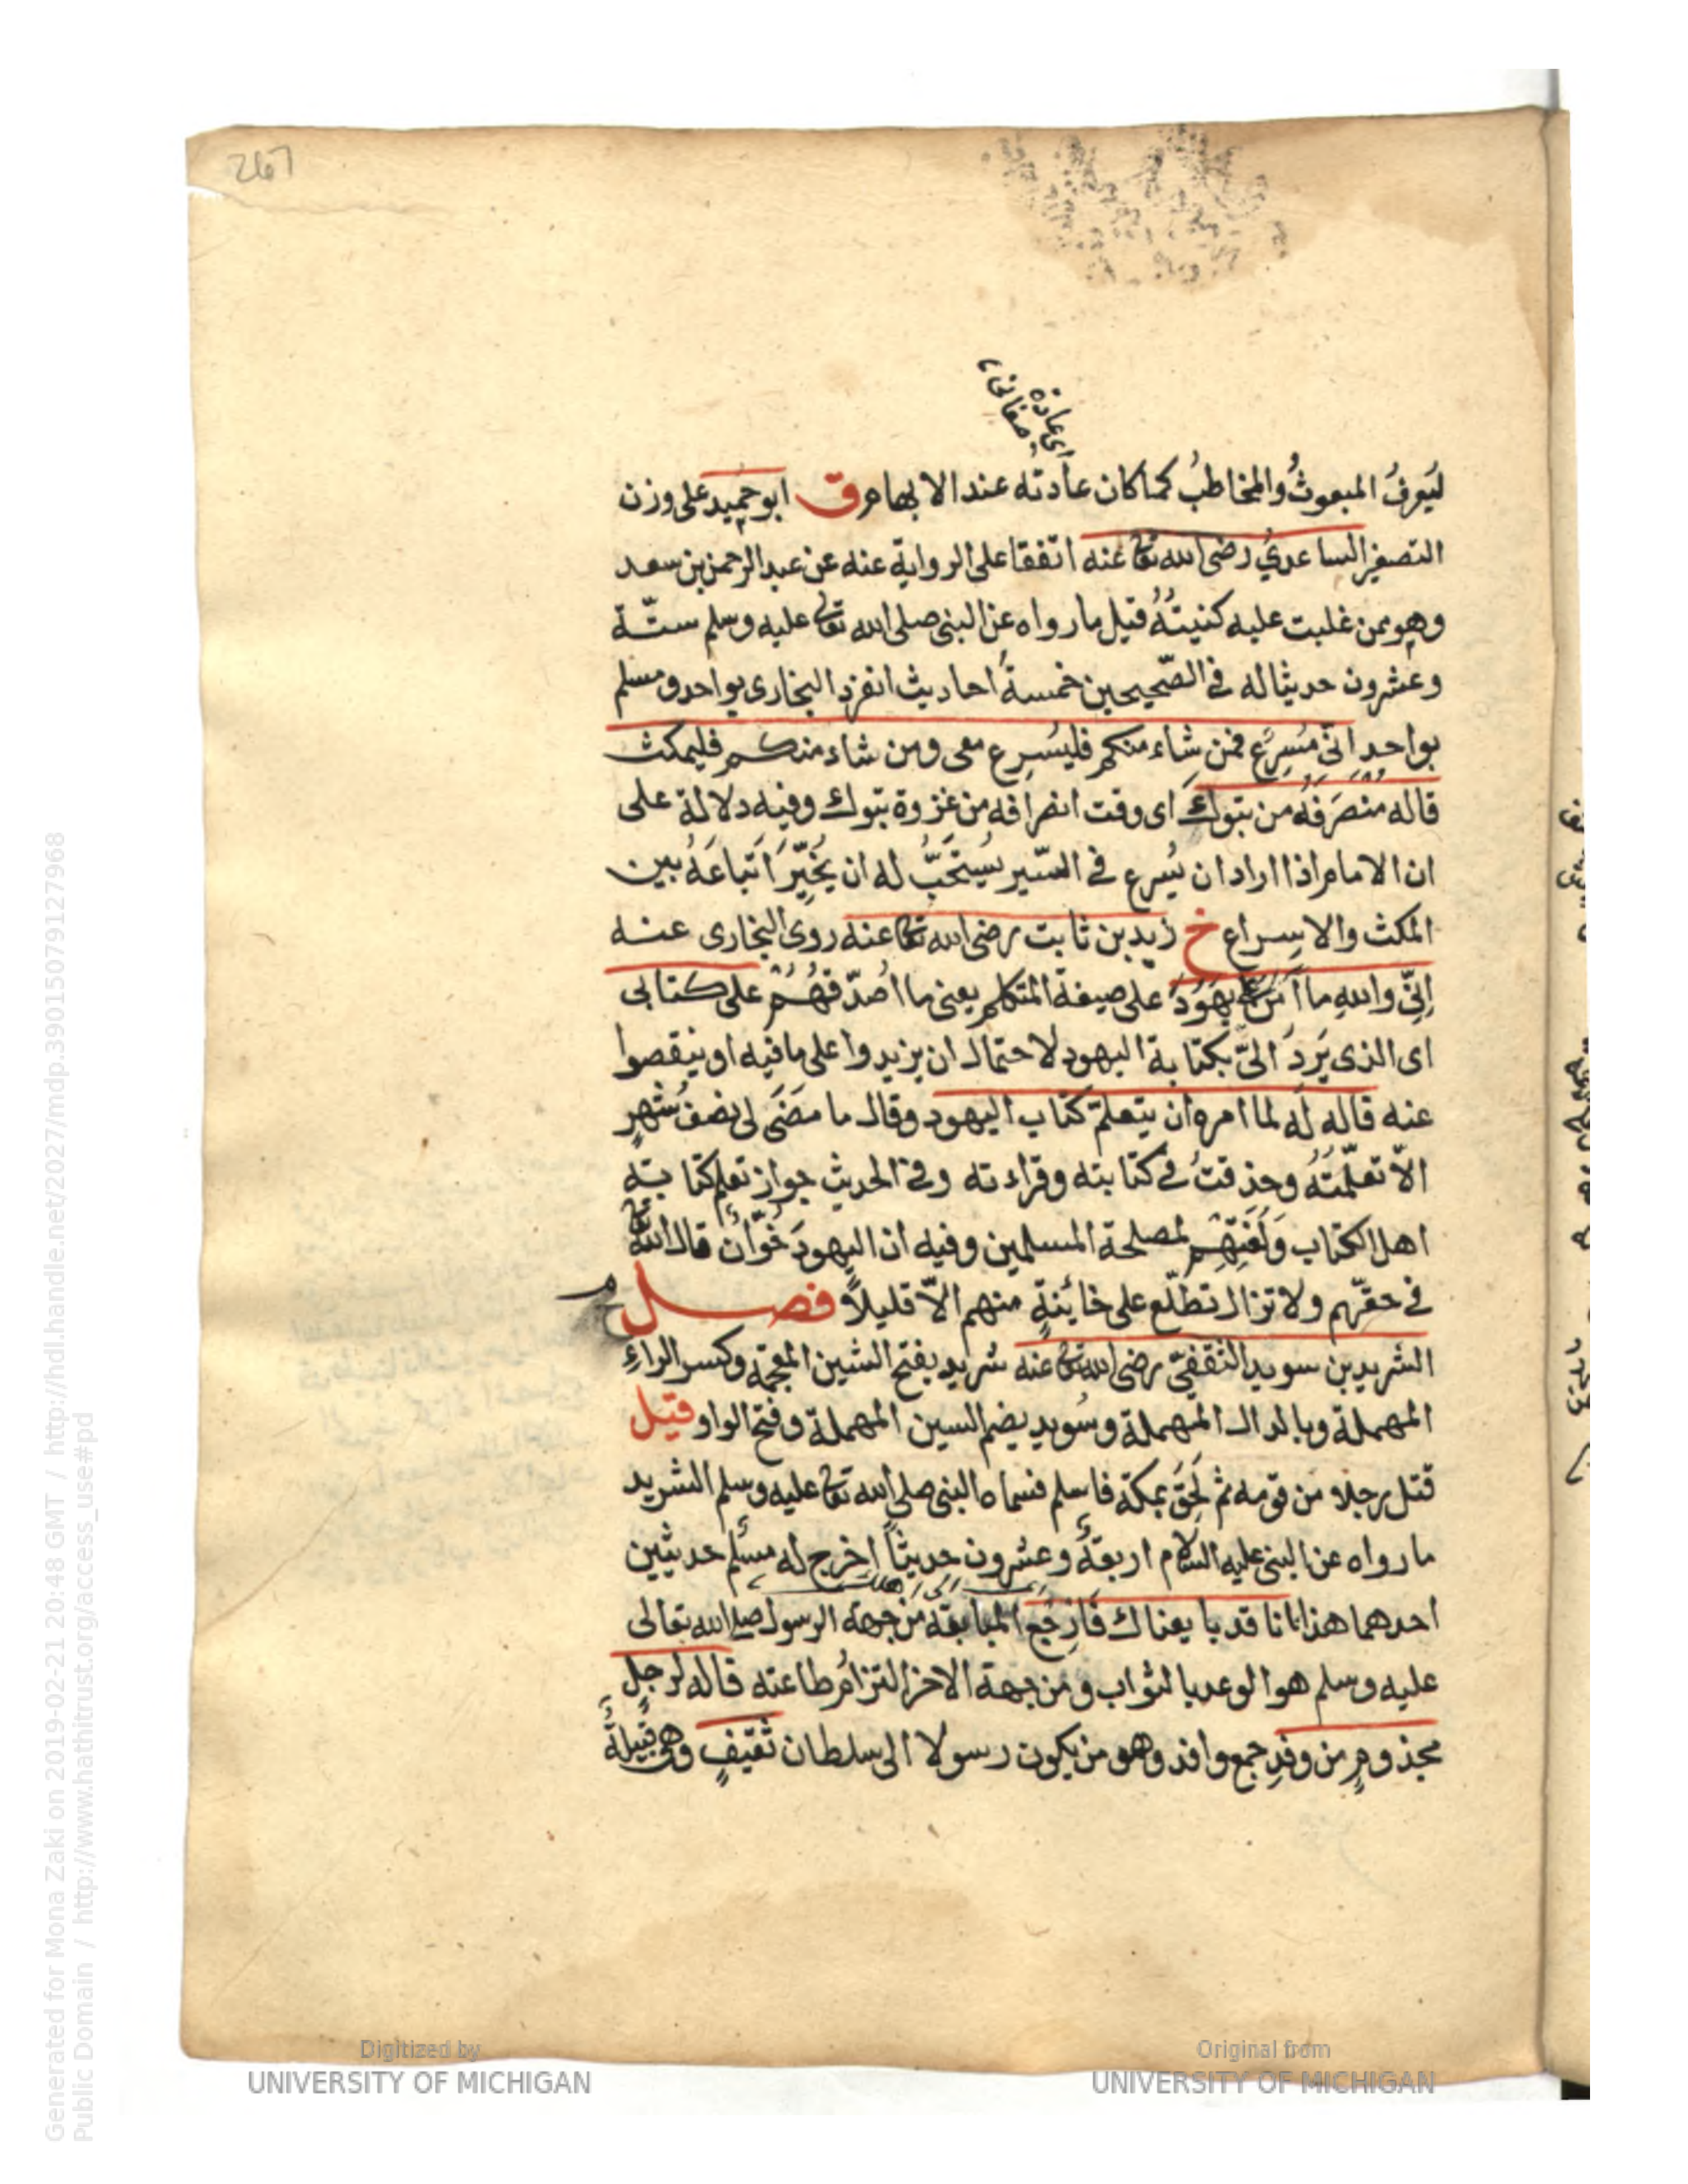 267
اى عادة
صغانى
ليَعرفُ المبعوثُ والمخاطبُ كما كان عادته عند الابهام ق ابو حُمَيد على وزن
التصغير الساعدىّ رضى الله تعا عنه اتفقا على الرواية عنه عن عبد الرحمن بن سعد
وهو ممن غلبت عليه كنيتُهُ قيل ما رواه عن النبى صلى الله تعا عليه وسلم ستّة
وعشرون حديثا له فى الصّحيحين خمسةُ احاديث انفرد البخارى بواحد ومسلم
بواحد انّى مُسرِعٌ فمن شاء منكم فليُسرِع معى ومن شاء منكم فليمكث
قاله مُنصَرَفَهُ من تبوك اى وقت انصرافه من غزوة تبوك وفيه دلالة على
ان الامام اذا اراد ان يُسرع فى السّير يُستحَبُّ له ان يُخَيِّرَ اَتباعَهُ بين
المكث والاسراع خ زيد بن ثابت رضى الله تعا عنه روى البخارى عنه
اِنّى واللهِ ما آمَنُ يَهُودَ على صيغة المتكلم يعنى ما اُصدّقهُمْ على كتابى
اى الذى يَرِدُ الىّ بكتابة اليهود لاحتمال ان يزيدوا على ما فيه او ينقصوا
عنه قاله لَه لما امره ان يتعلم كتاب اليهود وقال ما مضَى لى نصفُ شهرٍ
الاّ تعلّمتُهُ وحذقتُ فى كتابته وقراءته وفى الحديث جواز تعلم كتابته
اهل الكتاب ولُغَتِهِم لمصلحة المسلمين وفيه ان اليهودَ خُوّانٌ قال الله تعا
فى حقّهم ولا تزال تطلّع على خائنةٍ منهم الاّ قليلاً فصل م
الشريد بن سويد الثقفىّ رضى الله تعا عنه شريد بفتح الشين المعجمة وكسر الراءِ
المهملة وبالدال المهملة وسُويد بضم السين المهملة وفتح الواو قيل
قتل رجلا من قومه ثم لَحِقَ بمكة فاسلم فسماه النبى صلى الله تعا عليه وسلم الشريد
ما رواه عن النبى عليه السلام اربعةٌ وعشرون حديثاً اخرج له مسلم حديثين
احدهما هذا انا قد بايعناك فَارجِع المبايعة من جهة الرسول صلى الله تعالى
عليه وسلم هو الوعد بالثواب ومن جهة الاخر التزامُ طاعته قاله لرجلٍ
مجذومٍ من وفدِ جمع وافد وهو من يكون رسولا الى سلطان ثقيفٍ وهى قبيلةٌ
Generated for Mona Zaki on 2019-02-21 20:48 GMT / http://hdl.handle.net/2027/mdp.39015079127968
Public Domain / http://www.hathitrust.org/access_use#pd
Digitized by
UNIVERSITY OF MICHIGAN
Original from
UNIVERSITY OF MICHIGAN